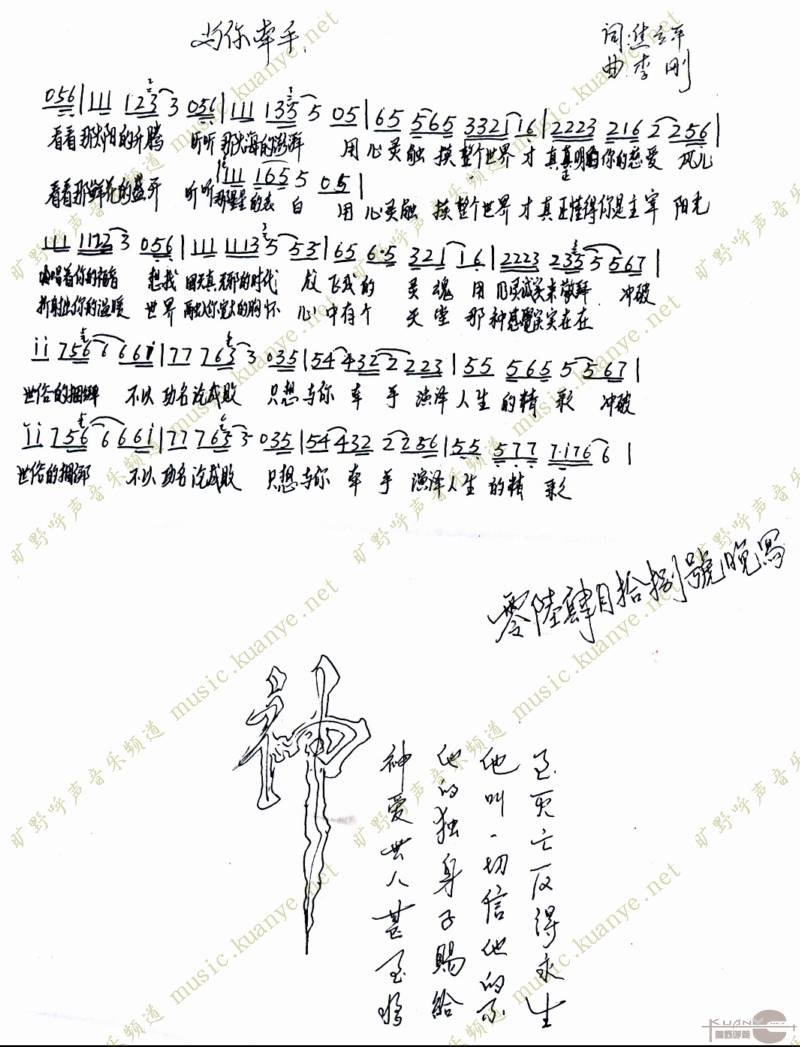 与你牵手
词:焦立平
曲 李刚
056|111 123 3 056|111 135 5 05|65 565 332116|2223 216 2 256|
看看那太阳的升腾 听听那大海的澎湃 用心灵触摸整个世界才真正明白你的慈爱 风儿
111 165 5 05|
看看那鲜花的盛开 听听那星星的表白 用心灵触摸整个世界才真正懂得你是主宰 阳光
111 1122 3 056|111 1113 5 535|65 65 321 16|2223 235 5 567|
唱着你的福音 想我 天真无邪的时代 放飞我的灵魂 用 来敬拜 冲破
折射出你的温暖 世界融入你宽大的胸怀 心中有个天堂 那种感觉实实在在
ii 756 6 66i|77 763 3 035|54 432 2 223|55 565 5 567|
世俗的捆绑 不以功名论成败 只想与你牵手演泽人生的精彩 冲破
ii 756 6 66i|77 763 3 035|54 432 2 256|55 577 7·i76 6|
世俗的捆绑 不以功名论成败 只想与你牵手演泽人生的精彩
零陆肆月拾捌號晚写
神
神爱世人甚至将
他的独身子賜給
他叫一切信他的不
至灭亡反得永生
旷野呼声音乐频道 music.kuanye.net
KUANYE
旷野呼声